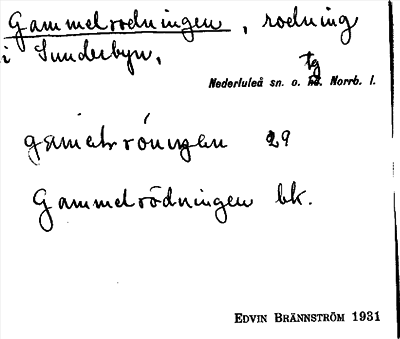 Gammelrodningen, rodning
i Sunderbyn.
tg
Nederluleå sn. o. hd. Norrb. l.
29
Gammelrödningen bk.
EDVIN BRÄNNSTRÖM 1931